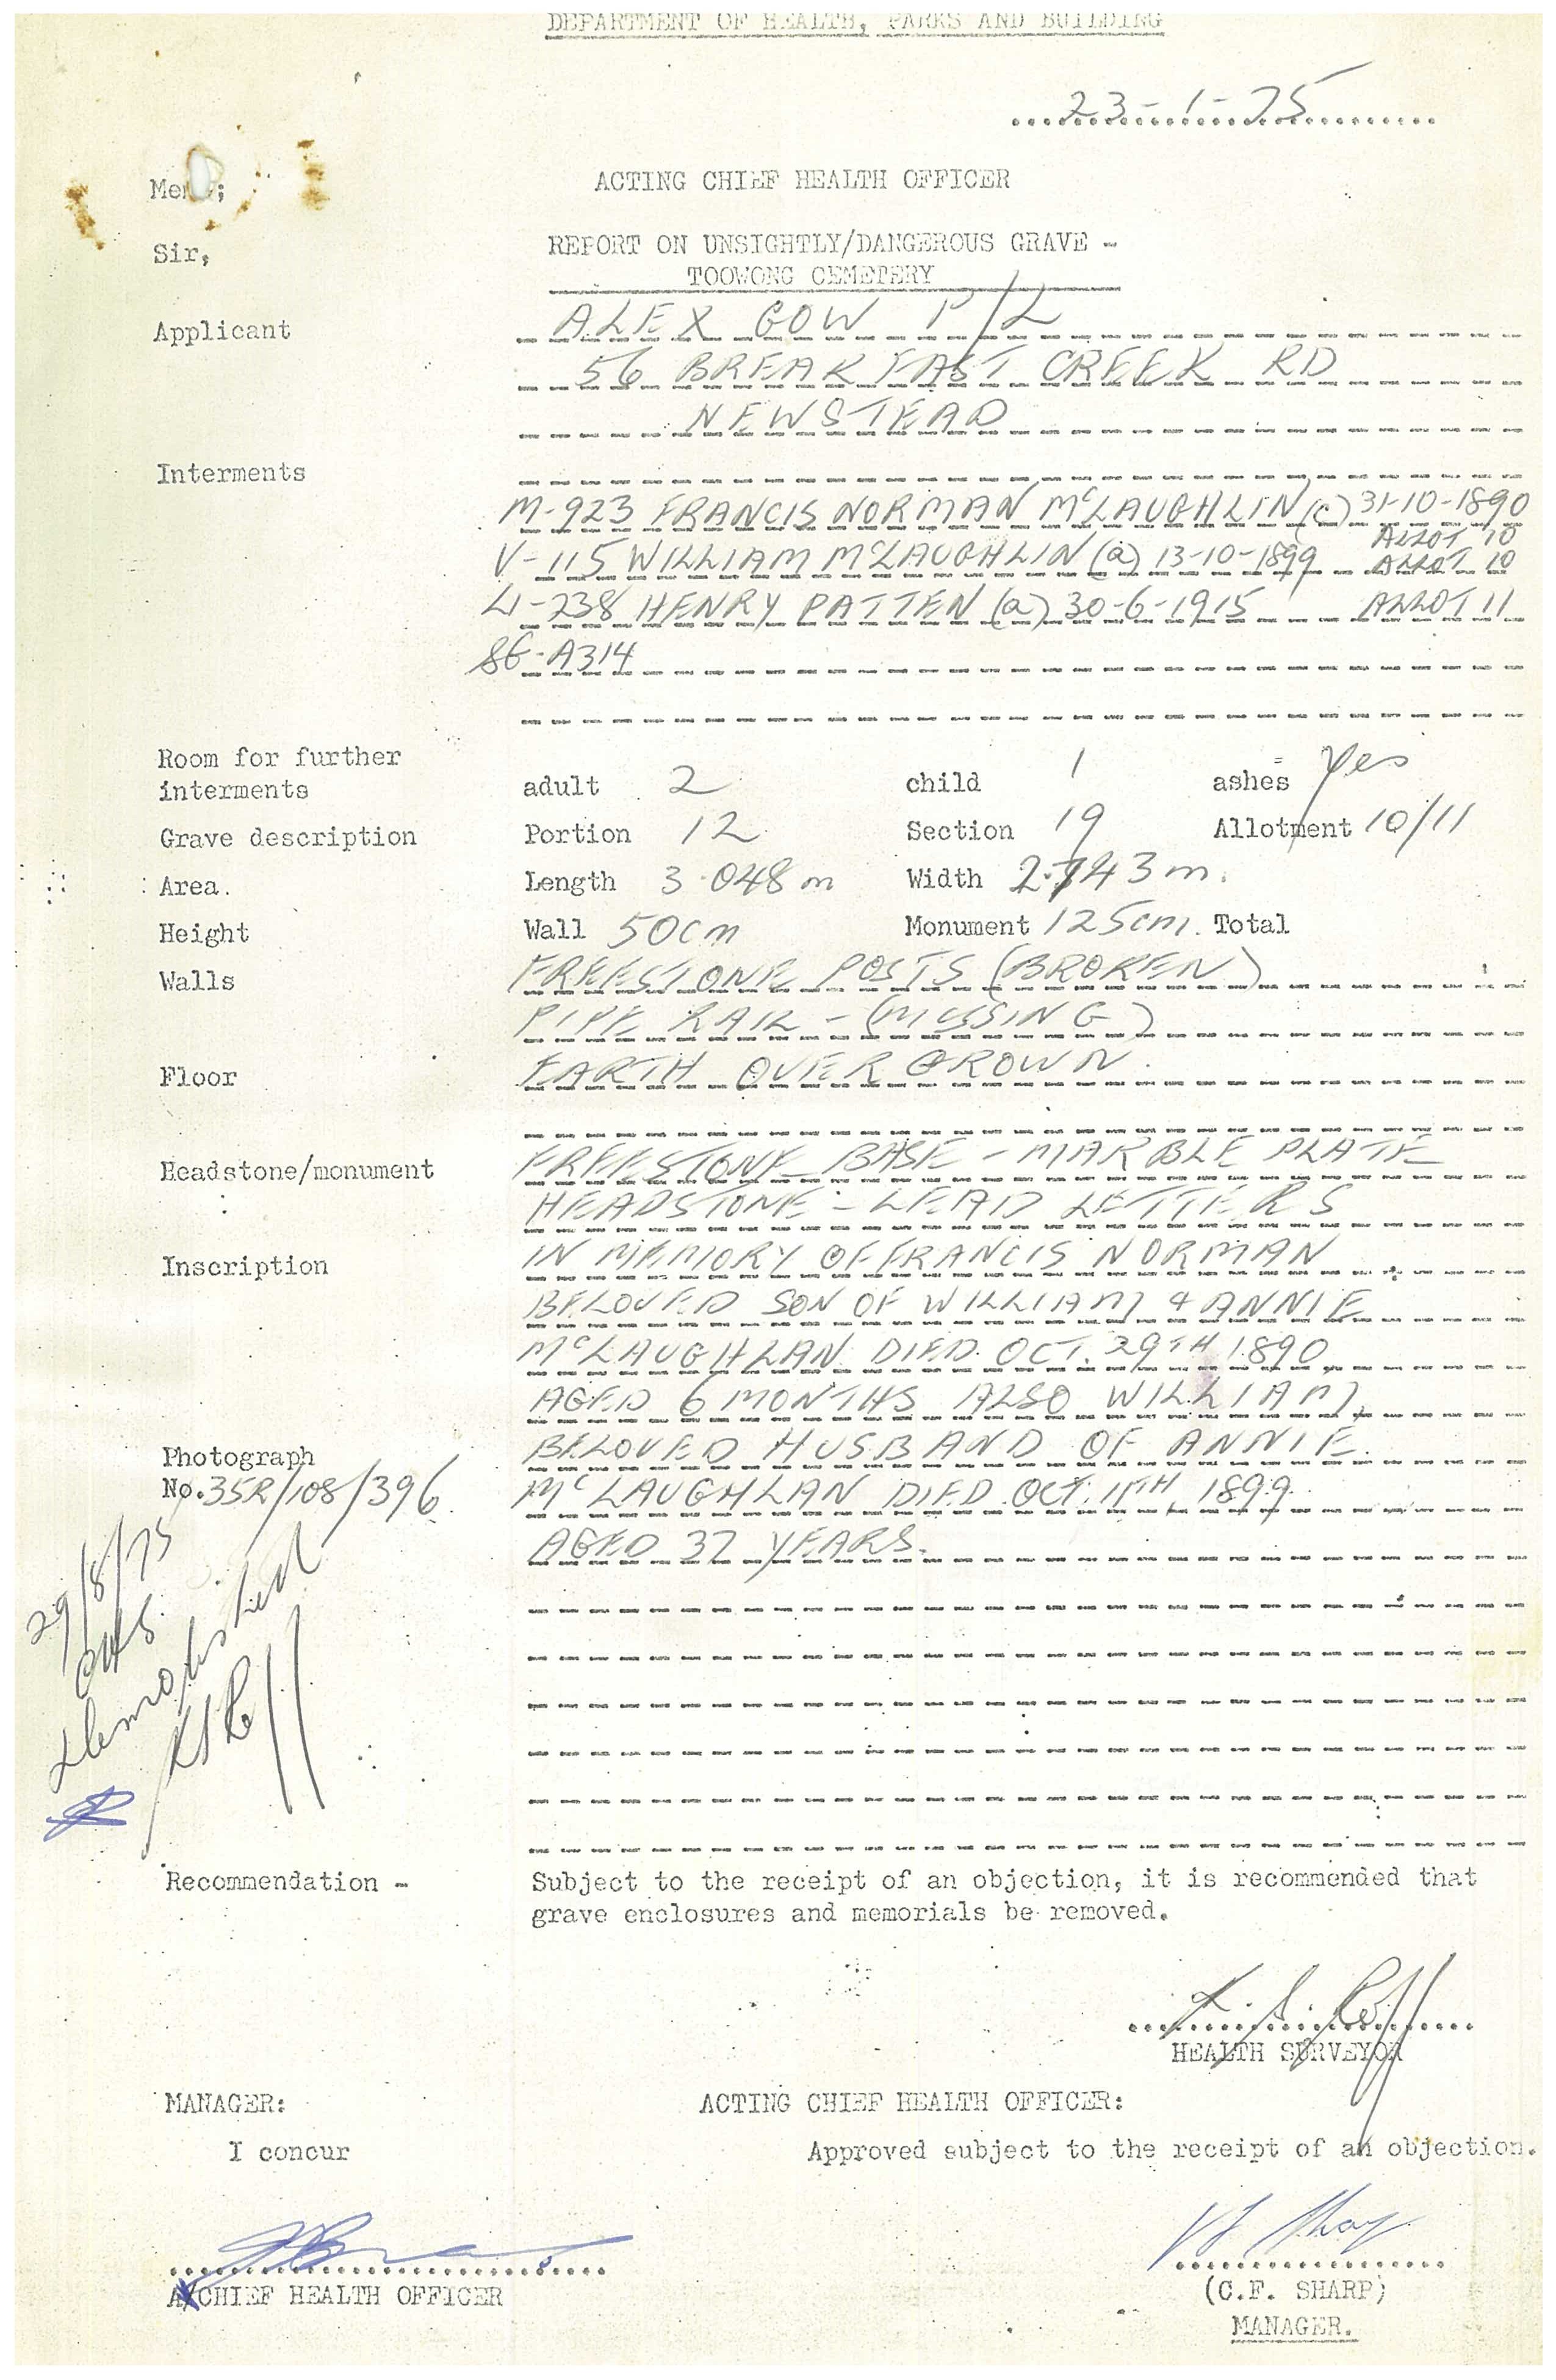 DEPARTMENT OF HEALTH, PARKS AND BUILDING
23-1-75
Memo;
ACTING CHIEF HEALTH OFFICER
Sir,
REPORT ON UNSIGHTLY/DANGEROUS GRAVE -
TOOWONG CEMETERY
Applicant ALEX GOW P/L
56 BREAKFAST CREEK RD
NEWSTEAD
Interments
M-923 FRANCIS NORMAN McLAUGHLIN (c) 31-10-1890
ALLOT 10
V-115 WILLIAM McLAUGHLIN (a) 13-10-1899 ALLOT 10
LI-238 HENRY PATTEN (a) 30-6-1915 ALLOT 11
SG-A314
Room for further
interments adult 2 child 1 ashes Yes
Grave description Portion 12 Section 19 Allotment 10/11
Area. Length 3.048m Width 2.743m.
Height Wall 50cm Monument 125cm. Total
Walls FREESTONE POSTS (BROKEN)
PIPE RAIL - (MISSING)
Floor EARTH OVERGROWN.
Headstone/monument FREESTONE BASE - MARBLE PLATE
HEADSTONE - LEAD LETTERS
Inscription IN MEMORY OF FRANCIS NORMAN
BELOVED SON OF WILLIAM & ANNIE
McLAUGHLAN DIED OCT. 29TH 1890
AGED 6 MONTHS ALSO WILLIAM,
Photograph BELOVED HUSBAND OF ANNIE.
No. 35R/108/396 McLAUGHLAN DIED OCT. 11TH, 1899.
AGED 37 YEARS.
29/8/75
CHS.
Demolished
Recommendation - Subject to the receipt of an objection, it is recommended that
grave enclosures and memorials be removed.
HEALTH SURVEYOR
MANAGER: ACTING CHIEF HEALTH OFFICER:
I concur Approved subject to the receipt of an objection.
A/CHIEF HEALTH OFFICER (C.F. SHARP)
MANAGER.